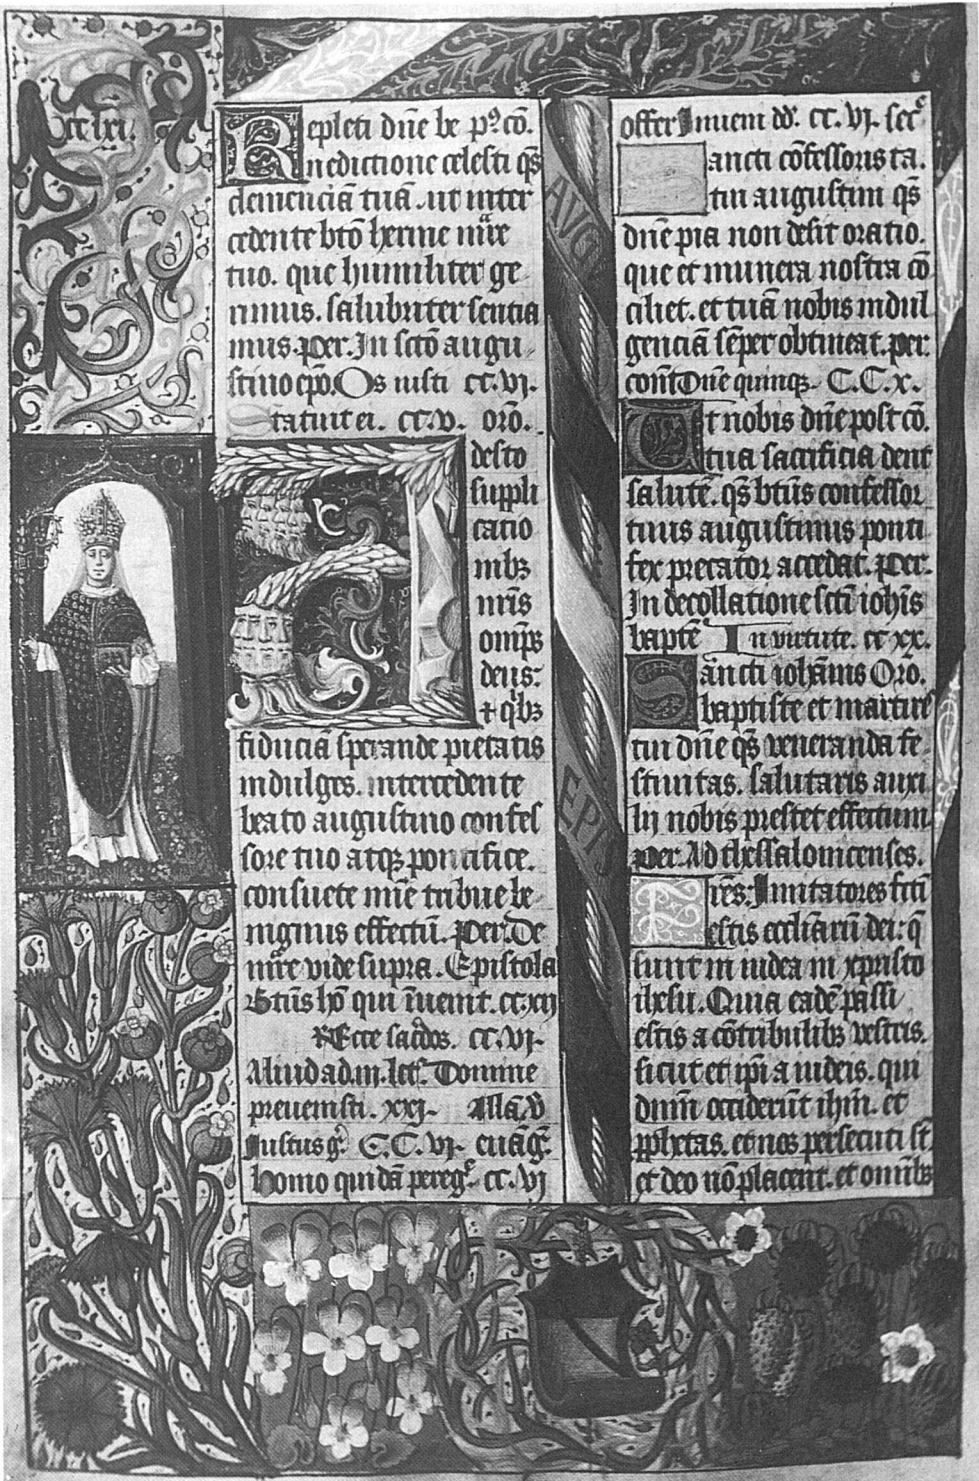 ccc lxi.
Repleti dn̄e be pº cō.
nedictione celesti q̄s
clemenciā tuā. ut inter
cedente btō herme m̄re
tuo. que humiliter ge
rimus. salubriter sentia
mus. per. In sctō augu
stino ep̄o. Os iusti cc. vi.
Statuit ei. cc. v. orō.
Adesto
suppli
catio
nibꝫ
nr̄is
omp̄s
deus:
⁊ qͥbꝫ
fiduciā sperande pietatis
indulges. intercedente
beato augustino confes
sore tuo atqꝫ pontifice.
consuete mīe tribue be
nignus effectū. Per. De
m̄re vide supra. Epistola
ꝶ Ecce sacͬdos. cc. vi.
Aliud ad. iii. lct. Domine
prevenisti. xxj. Alla. v̄
Iustus gͥ. C. C. vi. euāg.
homo quidā peregͥ. cc. vj
AVG
EPI
offer Inueni dd. cc. vj. secͤ.
Sancti cōfessoris ta.
tui augustini q̄s
dn̄e pia non desit oratio.
que et munera nostra cō
ciliet. et tuā nobis indul
genciā sēper obtineat. per.
com̄ Dn̄e quinqꝫ. C. C. x.
Ut nobis dn̄e post cō.
tua sacrificia dent
salutē. q̄s btūs confessor
tuus augustinus ponti
fex precator accedat. Per.
In decollatione sctī ioh̄is
baptē In virtute. cc xx.
Sāncti ioh̄annis Oro.
baptiste et martire
tui dn̄e q̄s veneranda fe
stiuitas. salutaris auxi
lij nobis prestet effectum
Per. Ad thessalonicenses.
Fres: Imitatores fctī
estis ecclīarū dei: q̄
sunt in iudea in xpristo
ihesu. Quia eadē passi
estis a cōtribulibꝫ vestris.
sicut et ip̄i a iudeis. qui
dnm̄ occiderūt ihm̄. et
ꝓphetas. et nos persecuti st̄
et deo nō placent. et omībꝫ